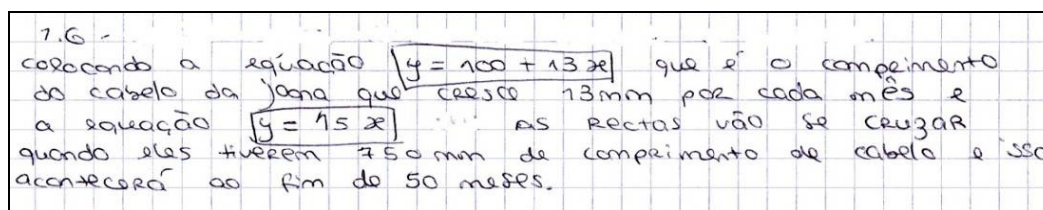 1.6 -
colocando a equação y = 100 + 13x que é o comprimento
do cabelo da joana que cresce 13mm por cada mês e
a equação y = 15x as rectas vão se cruzar
quando eles tiverem 750mm de comprimento de cabelo e isso
acontecerá ao fim de 50 meses.